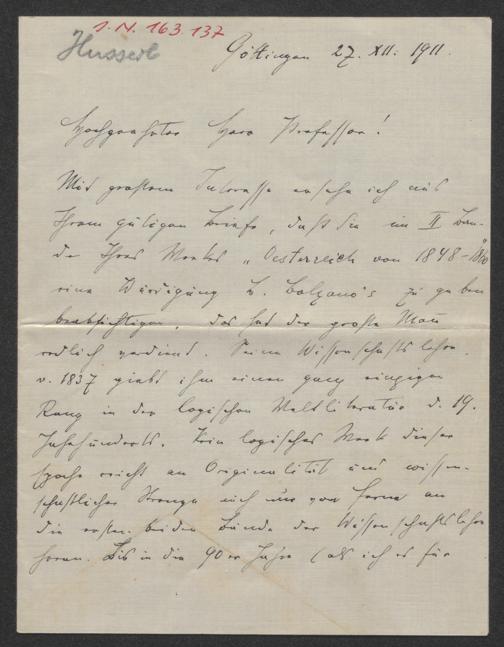 I. N. 163.137
Husserl
Göttingen 27. XII. 1911.
Hochgeehrter Herr Professor!
Mit großem Interesse ersehe ich aus
Ihrem gütigen Briefe, daß Sie im II Ban-
de Ihres Werkes „Oesterreich von 1848–1860
eine Würdigung B. Bolzano's zu geben
beabsichtigen. Das hat der große Mann
redlich verdient. Seine Wissenschaftslehre
v. 1837 giebt ihm einen ganz einzigen
Rang in der logischen Weltliteratur d. 19.
Jahrhunderts. Kein logisches Werk dieser
Epoche reicht an Originalität und wissen-
schaftlicher Strenge auch nur von ferne an
die ersten beiden Bände der Wissenschaftslehre
heran. Bis in die 90er Jahre (als ich es für